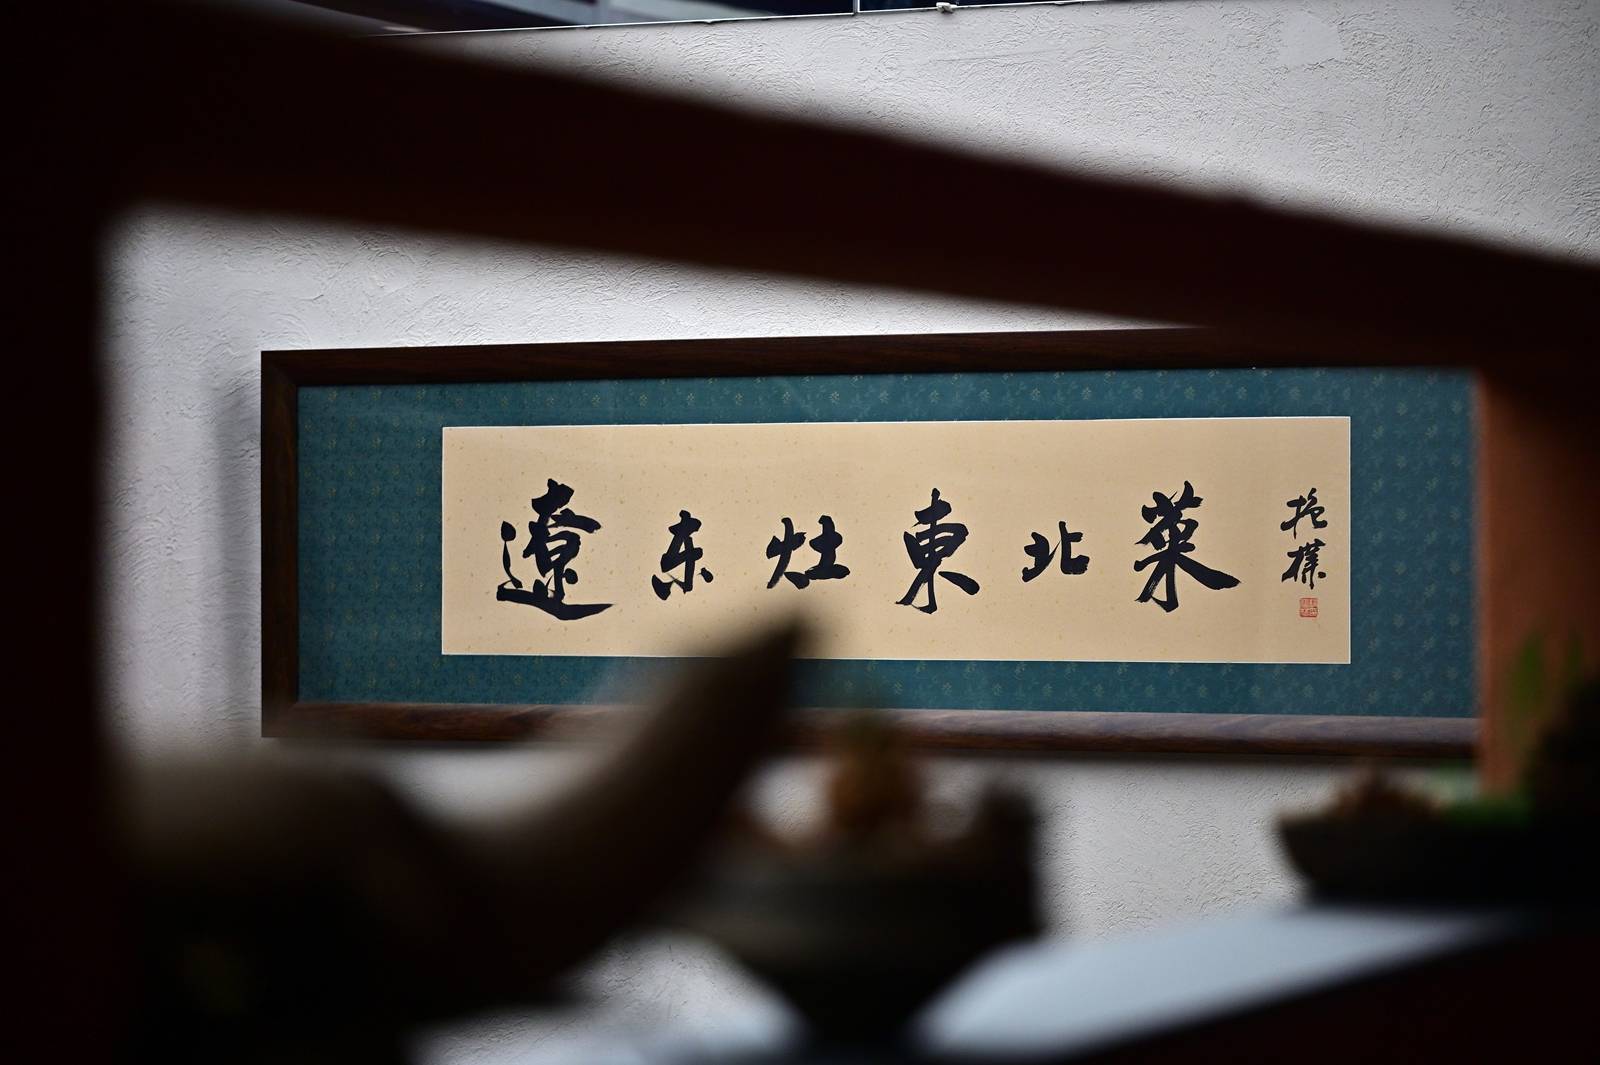 遼东灶東北菜
抱樸